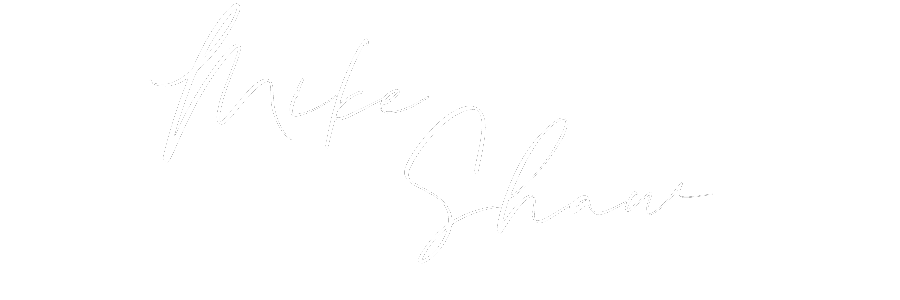 Mike
Shaw